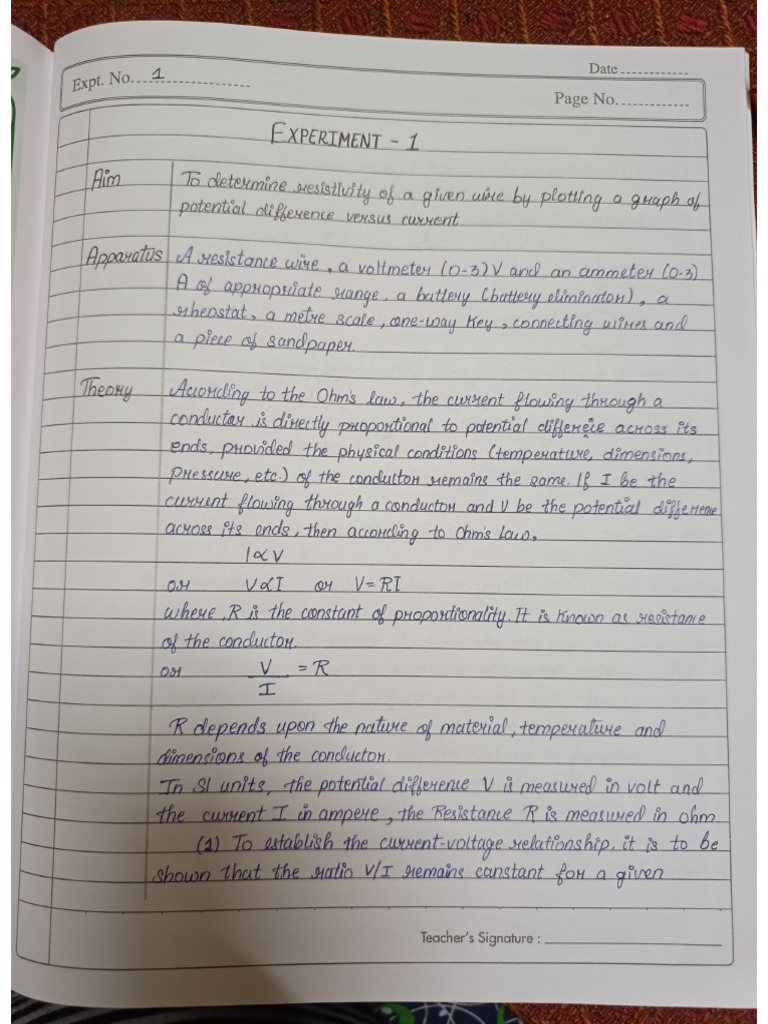 Expt. No. 1
Date
Page No.
EXPERIMENT - 1
Aim To determine resistivity of a given wire by plotting a graph of
potential difference versus current.
Apparatus A resistance wire, a voltmeter (0-3) V and an ammeter (0-3)
A of appropriate range, a battery (battery eliminator), a
rheostat, a metre scale, one-way key, connecting wires and
a piece of sandpaper.
Theory According to the Ohm's law, the current flowing through a
conductor is directly proportional to potential differece across its
ends, provided the physical conditions (temperature, dimensions,
pressure, etc.) of the conductor remains the same. If I be the
current flowing through a conductor and V be the potential difference
across its ends, then according to Ohm's law,
I ∝ V
or V ∝ I or V = RI
where, R is the constant of proportionality. It is known as resistance
of the conductor.
or V/I = R
R depends upon the nature of material, temperature and
dimensions of the conductor.
In SI units, the potential difference V is measured in volt and
the current I in ampere, the Resistance R is measured in ohm.
(1) To establish the current-voltage relationship, it is to be
shown that the ratio V/I remains constant for a given
Teacher's Signature :